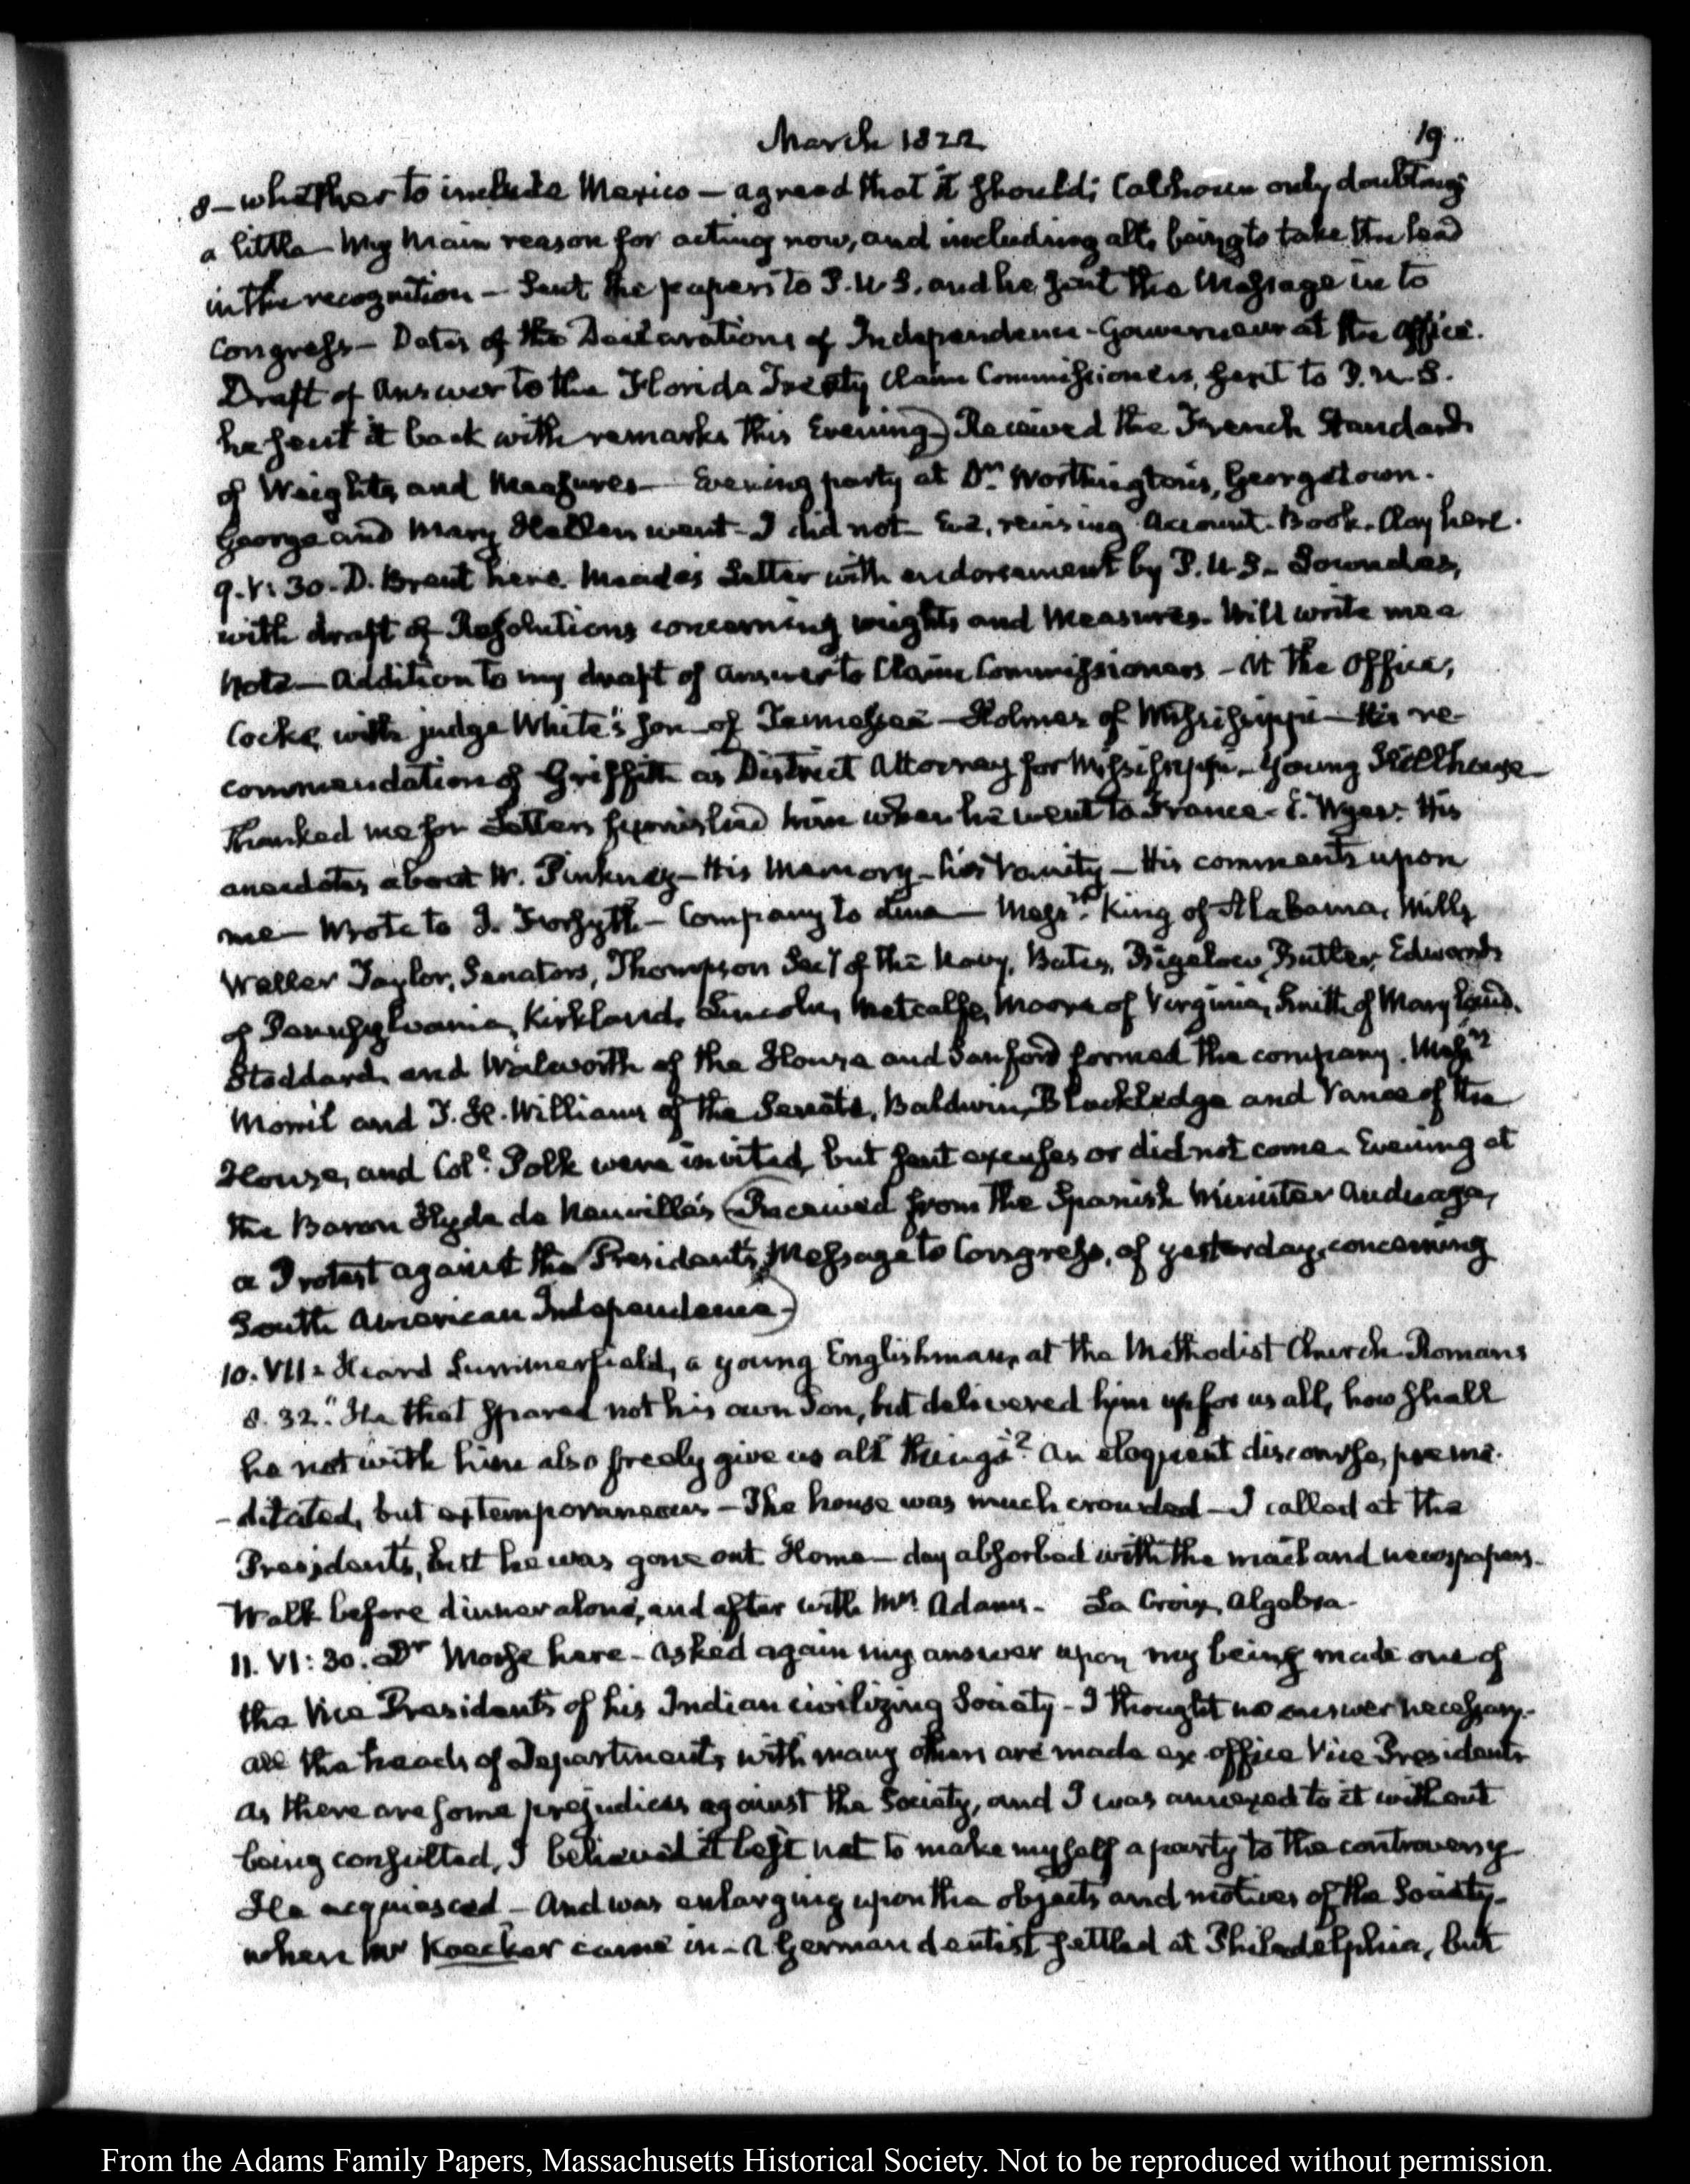 March 1822
19.
8 – whether to include Mexico – agreed that it should; Calhoun only doubting
a little – My main reason for acting now, and including all, being to take the lead
in the recognition – Sent the papers to P.U.S. and he sent the Message in to
Congress – Dates of the Declarations of Independence – Gouverneur at the office.
Draft of Answer to the Florida Treaty Claim Commissioners, sent to P.U.S.
he sent it back with remarks this Evening) Received the French Standards
of Weights and Measures – Evening party at Dr. Worthington's, Georgetown.
George and Mary Hellen went – I did not – Eve, revising Account-Book. Clay here.
9. V: 30. D. Brent here. Meade's Letter with endorsement by P.U.S. – Lowndes,
with draft of Resolutions concerning weights and Measures. Will write me a
Note – Addition to my draft of answer to Claim Commissioners – At the Office,
Cocke, with judge White's son of Tennessee – Holmes of Mississippi – His re-
commendation of Griffith as District Attorney for Mississippi – Young
Thanked me for Letters furnished him when he went to France – E. Wyer. His
anecdotes about W. Pinkney – His Memory – his Vanity – His comments upon
me – Wrote to J. Forsyth – Company to dine – Messrs. King of Alabama, Mills
Waller Taylor, Senators, Thompson Secy of the Navy, Bates, Bigelow, Butler, Edwards
of Pennsylvania, Kirkland, Lincoln, Metcalfe, Moore of Virginia, Smith of Maryland.
Stoddard, and Walworth of the House and Sanford formed the company. Messrs
Morril and T. H. Williams of the Senate, Baldwin, Blackledge and Vance of the
House, and Coll. Polk were invited, but sent excuses or did not come. Evening at
the Baron Hyde de Neuville's (Received from the Spanish Minister Anduaga,
a Protest against the President's Message to Congress, of yesterday, concerning
South American Independence –)
10. VII. Heard Summerfield, a young Englishman, at the Methodist Church. Romans
8. 32. "He that spared not his own Son, but delivered him up for us all, how shall
he not with him also freely give us all things"? An eloquent discourse, preme-
-ditated, but extemporaneous – The house was much crowded – I called at the
Presidents, but he was gone out. Home – day absorbed with the mail and newspapers.
Walk before dinner alone, and after with Mrs. Adams. La Croix, Algebra.
11. VI: 30. Dr Morse here – asked again my answer upon my being made one of
the Vice Presidents of his Indian civilizing Society – I thought no answer necessary.
All the heads of Departments, with many others are made ex officio Vice Presidents
As there are some prejudices against the Society, and I was annexed to it without
being consulted, I believed it best not to make myself a party to the controversy
He acquiesced – And was enlarging upon the objects and motives of the Society –
when Mr Koecker came in – A German dentist settled at Philadelphia, but
From the Adams Family Papers, Massachusetts Historical Society. Not to be reproduced without permission.